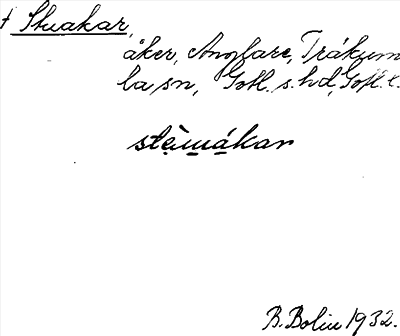 † Stuakar,
åker, Angfare, Träkum
la, sn, Gotl. s. hd, Gotl. l.
stèmákar
B. Bolin 1932.